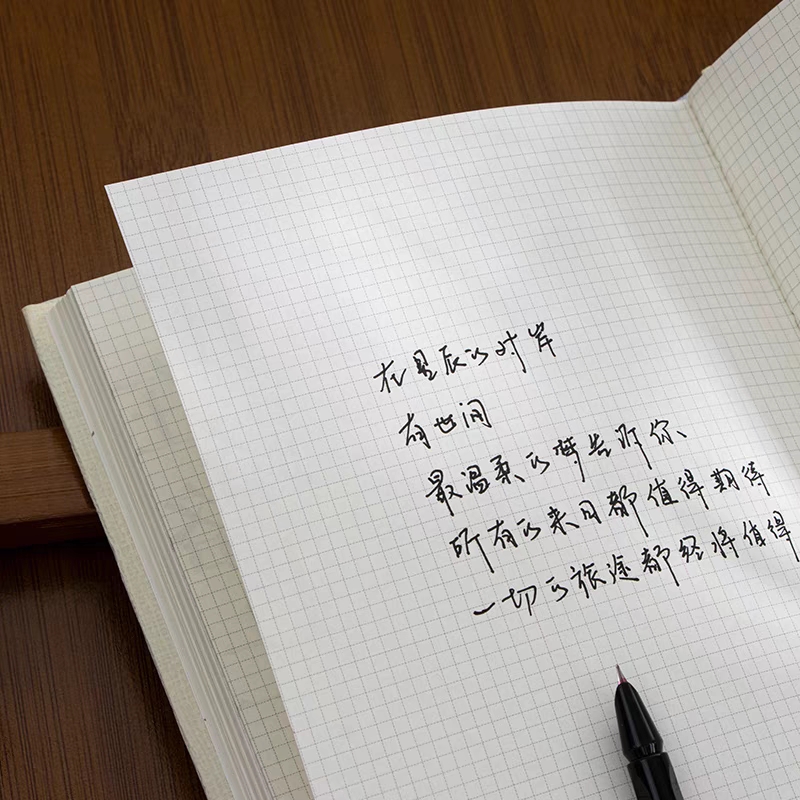 在星辰的对岸
有世间
最温柔的梦告诉你、
所有的来日都值得期待
一切的旅途都终将值得